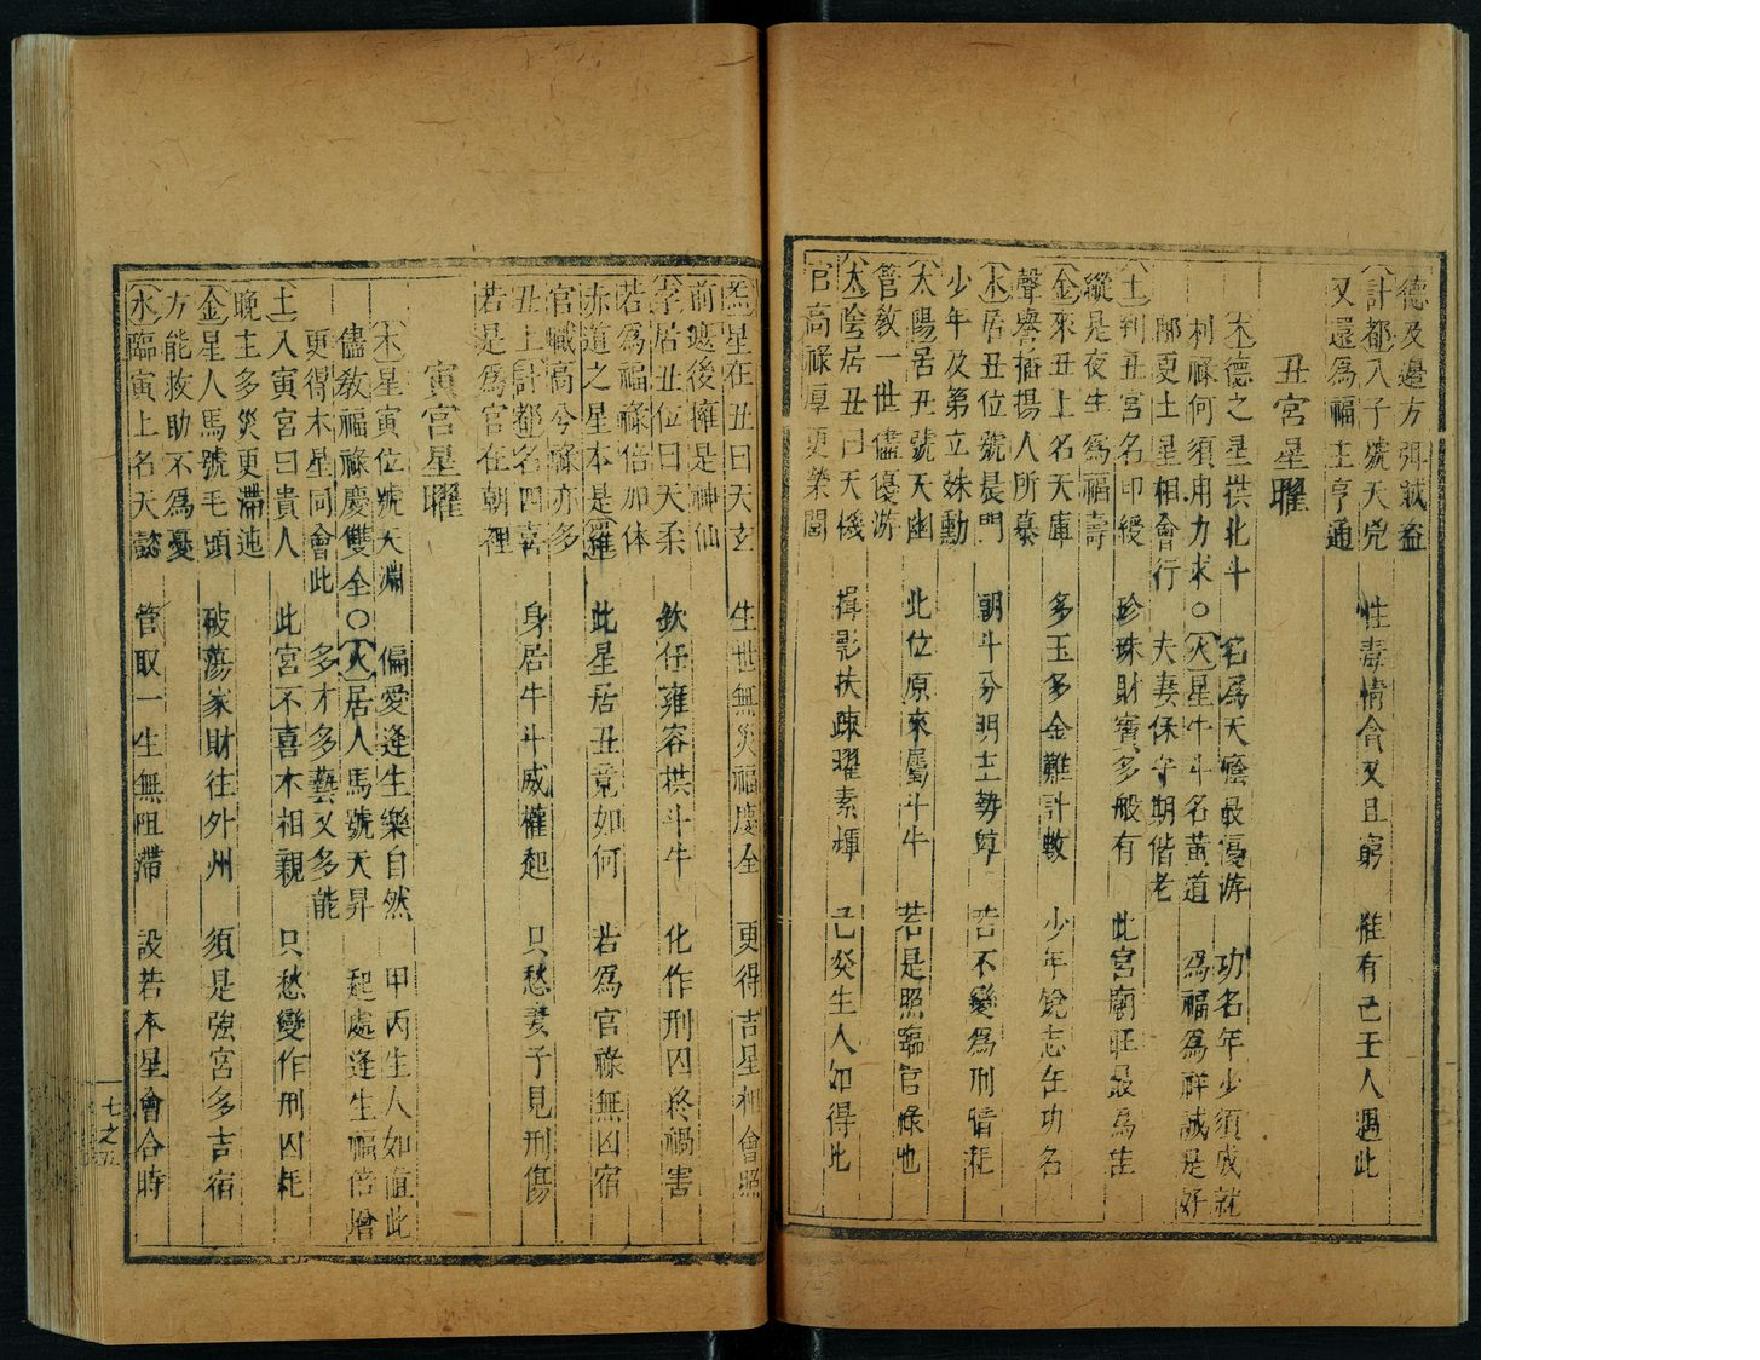 德及邊方弭誡盗
計都入子號天兇　性毒情令又且窮　惟有己壬人遇此
又還爲福主亨通
丑宮星曜
木德之星拱北斗　宅爲天廕最優游　功名年少須成就
利祿何須用力求○火星牛斗名黃道　爲福爲祥誠是好
那更土星相會行　夫妻保守期偕老
土到丑宮名印綬　珍珠財寳多般有　此宮廟旺最爲
縱是夜生爲福壽
金來丑上名天庫　多玉多金難計數　少年銳志在功名
聲譽播揚人所慕
木居丑位號晨門　朝斗分明士勢尊　若不變爲刑暗耗
少年及第立姝勳
太陽居丑號天幽　此位原來屬斗牛　若是照臨官祿也
管敎一世儘優游
太陰居丑曰天機　揖影扶踈曜素揮　己癸生人如得此
官高祿厚更榮閨
炁星在丑曰天玄　生世無災福慶全　更得吉星相會照
前遮後擁是神仙
孛居丑位曰天柔　欽任雍容拱斗牛　化作刑囚終禍害
若爲福祿倍加体
赤道之星本是羅　此星居丑竟如何　若爲官祿無凶宿
官職高兮祿亦多
丑上計都名四喜　身居牛斗威權起　只愁妻子見刑傷
若是爲官在朝裡
寅宮星曜
木星寅位號天淵　偏愛逢生樂自然　甲丙生人如值此
儘敎福祿慶雙全○火居人馬號天昇　起處逢生福倍增
更得木星同會此　多才多藝又多能
土入寅宮曰貴人　此宮不喜木相親　只愁變作刑囚耗
晚主多災更滯迍
金星人馬號毛頭　破蕩家財往外州　須是強宮多吉宿
方能救助不爲憂
水臨寅上名天懿　管取一生無阻滯　設若本星會合時
七之五